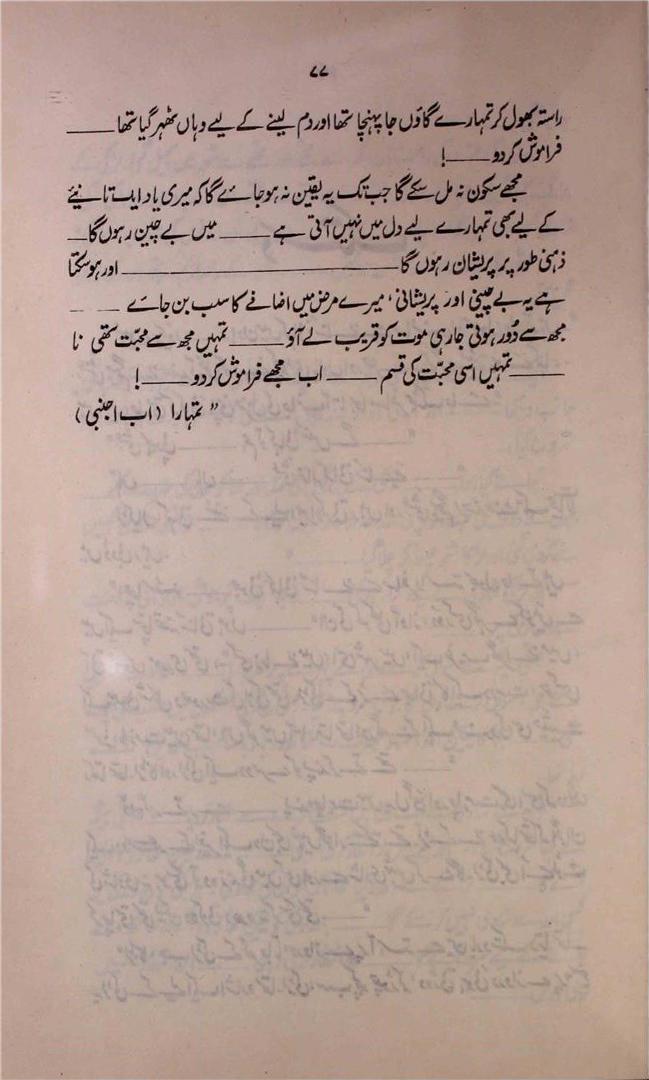 ۷۷
راستہ بھول کر تمہارے گاؤں جا پہنچا تھا اور دم لینے کے لیے وہاں ٹھہر گیا تھا ——
فراموش کر دو —— !
مجھے سکون نہ مل سکے گا جب تک یہ یقین نہ ہو جائے گا کہ میری یاد ایک ثانیئے
کے لیے بھی تمہارے لیے دل میں نہیں آتی ہے —— میں بے چین رہوں گا —
ذہنی طور پر پریشان رہوں گا —————— اور ہو سکتا
ہے یہ بے چینی اور پریشانی، میرے مرض میں اضافے کا سبب بن جائے — —
مجھ سے دُور ہوتی جا رہی موت کو قریب لے آؤ —— تمہیں مجھ سے محبّت تھی نا
—— تمہیں اسی محبّت کی قسم —— اب مجھے فراموش کر دو —— !
" تمہارا (اب اجنبی)